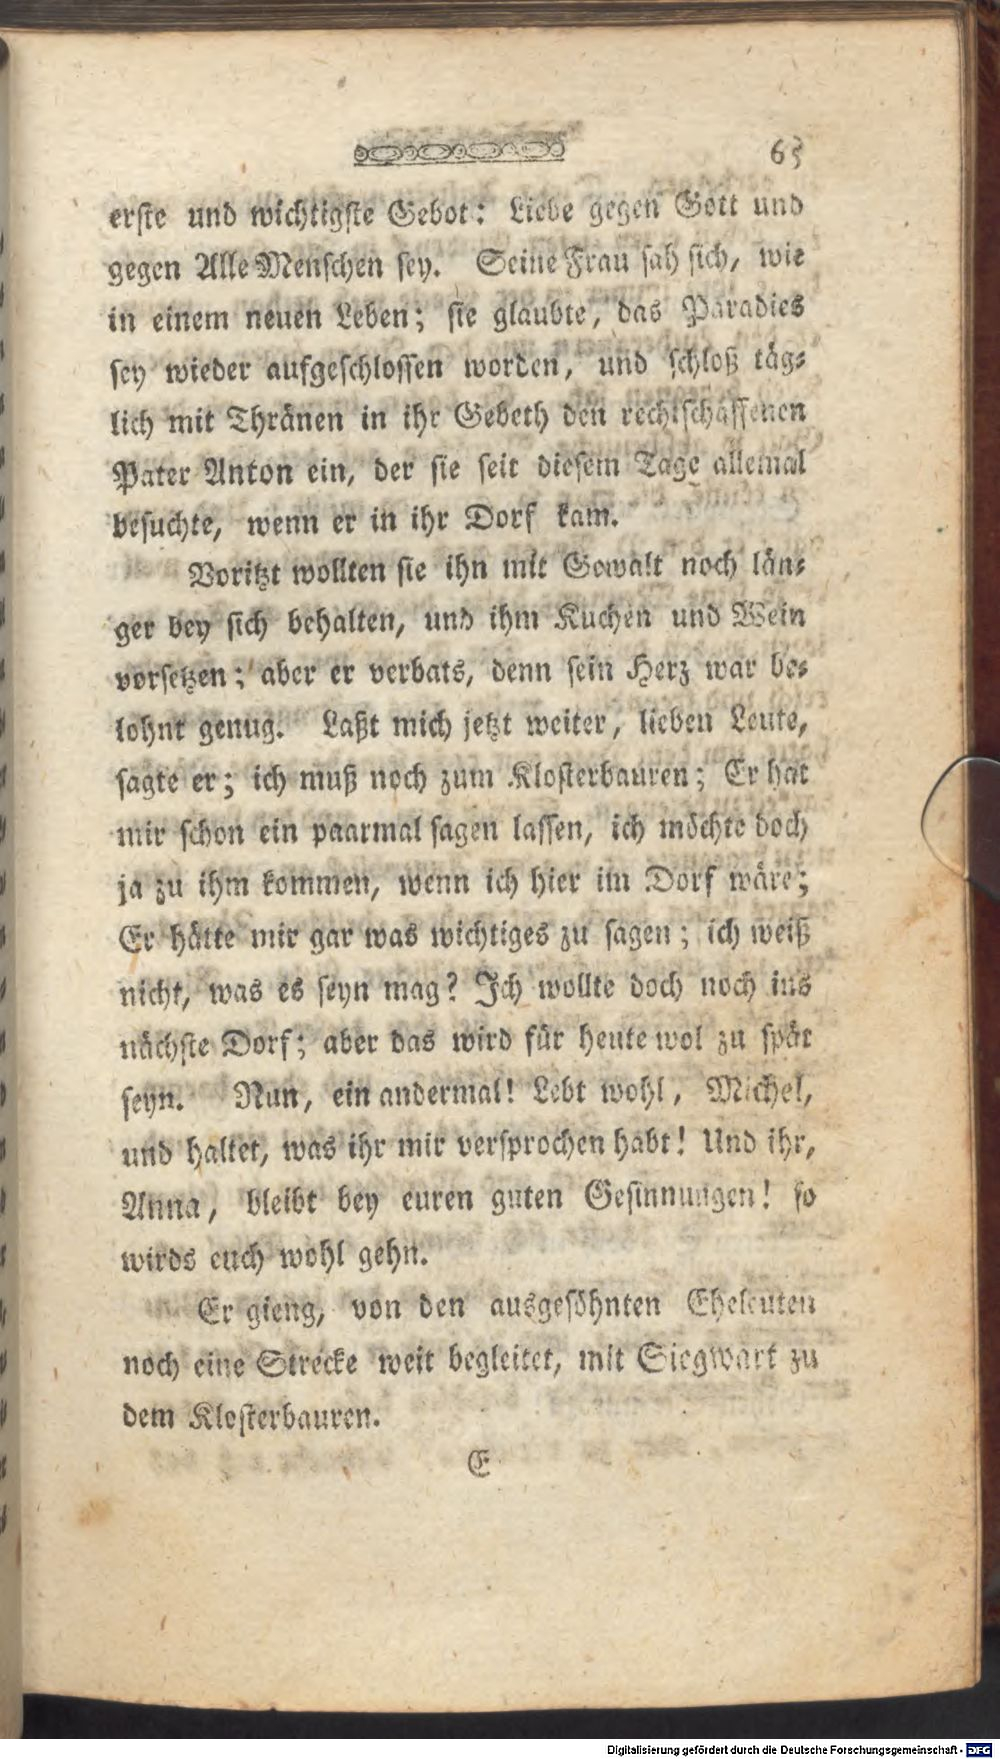 65
erste und wichtigste Gebot: Liebe gegen Gott und
gegen Alle Menschen sey. Seine Frau sah sich, wie
in einem neuen Leben; sie glaubte, das Paradies
sey wieder aufgeschlossen worden, und schloß täg-
lich mit Thränen in ihr Gebeth den rechtschaffenen
Pater Anton ein, der sie seit diesem Tage allemal
besuchte, wenn er in ihr Dorf kam.
Voritzt wollten sie ihn mit Gewalt noch län-
ger bey sich behalten, und ihm Kuchen und Wein
vorsetzen; aber er verbats, denn sein Herz war be-
lohnt genug. Laßt mich jetzt weiter, lieben Leute,
sagte er; ich muß noch zum Klosterbauren; Er hat
mir schon ein paarmal sagen lassen, ich möchte doch
ja zu ihm kommen, wenn ich hier im Dorf wäre;
Er hätte mir gar was wichtiges zu sagen; ich weiß
nicht, was es seyn mag? Ich wollte doch noch ins
nächste Dorf; aber das wird für heute wol zu spät
seyn. Nun, ein andermal! Lebt wohl, Michel,
und haltet, was ihr mir versprochen habt! Und ihr,
Anna, bleibt bey euren guten Gesinnungen! so
wirds euch wohl gehn.
Er gieng, von den ausgesöhnten Eheleuten
noch eine Strecke weit begleitet, mit Siegwart zu
dem Klosterbauren.
E
Digitalisierung gefördert durch die Deutsche Forschungsgemeinschaft - DFG